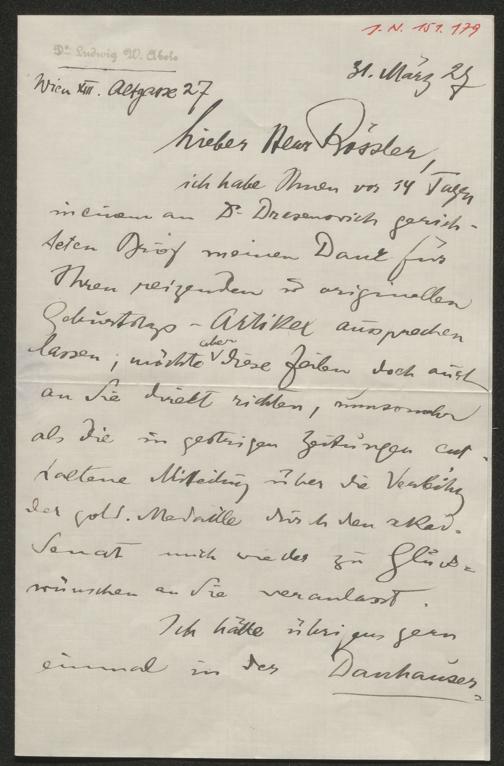 I. N. 151.179
Dr Ludwig W. Abels
31. März 27
Wien XIII. Altgasse 27
Lieber Herr Rössler,
ich habe Ihnen vor 14 Tagen
in einem an Dr. Dresenovich gerich-
teten Brief meinen Dank für
Ihren reizenden u originellen
Geburtstags-Artikel aussprechen
lassen; möchte aber diese Zeilen doch auch
an Sie direkt richten, umsomehr
als die in gestrigen Zeitungen ent-
haltene Mitteilung über die Verleihg
der gold. Medaille durch den akad.
Senat mich wieder zu Glück=
wünschen an Sie veranlasst.
Ich hätte übrigens gern
einmal in der Danhauser=